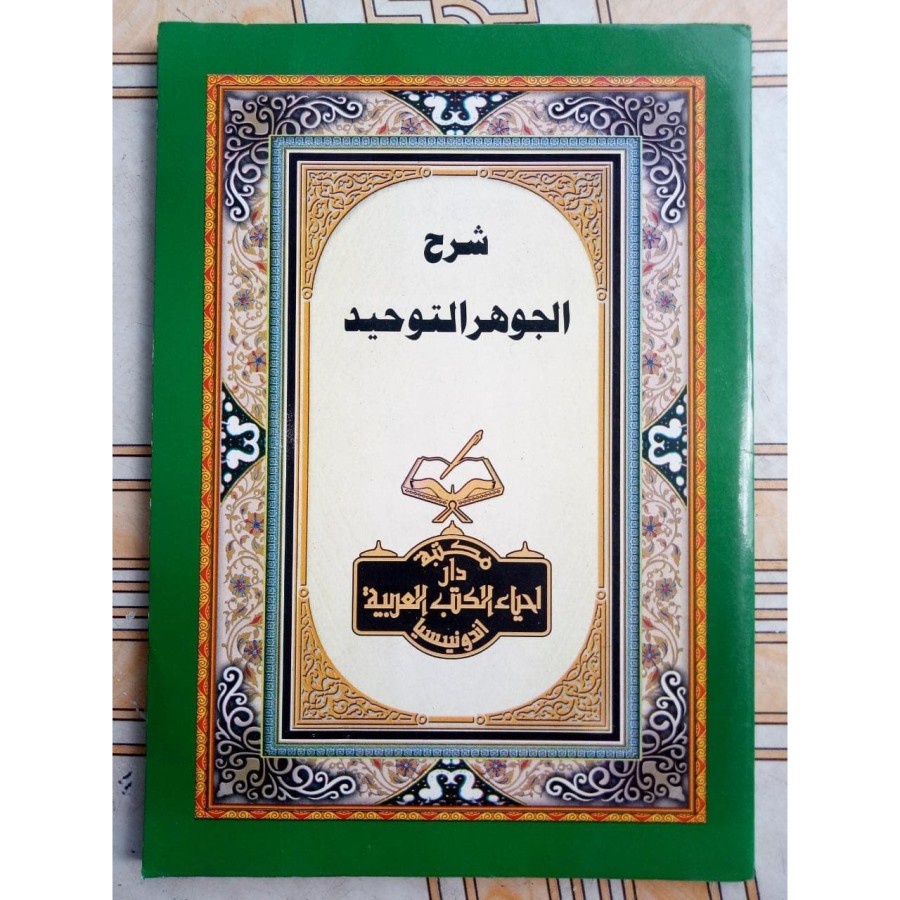 شرح
الجوهرالتوحيد
مكتبة
دار
احياء الكتب العربية
اندونيسيا